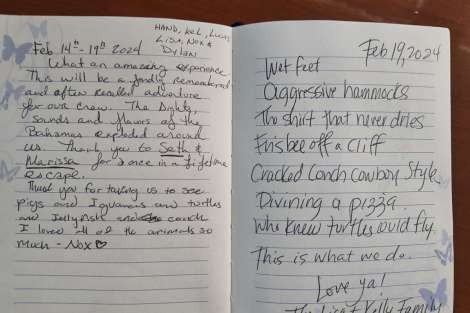 Feb 14th - 19th 2024
HAND, Kel, Lucas,
Lisa, Nox &
Dylan
What an amazing experience
This will be a fondly remembered
and often recalled adventure
for our crew. The Sights,
Sounds and flavors of the
Bahamas exploded around
us. Thank you to Seth &
Marissa for a once in a lifetime
escape.
Thank you for taking us to see
pigs and Iguanas and turtles
and Jellyfish and conch
I loved all of the animals so
much - Nox ♡
Feb 19, 2024
Wet feet
Aggressive hammocks
The shirt that never dries
Frisbee off a cliff
Cracked Conch Cowboy Style
Divining a pizza
Who knew turtles could fly.
This is what we do.
Love ya!
The Lisa & Kelly Family